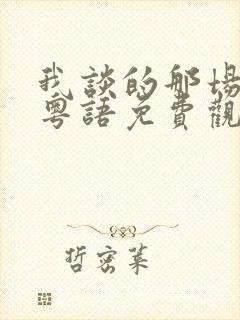 我談的那場
粵語免費觀
哲密葉